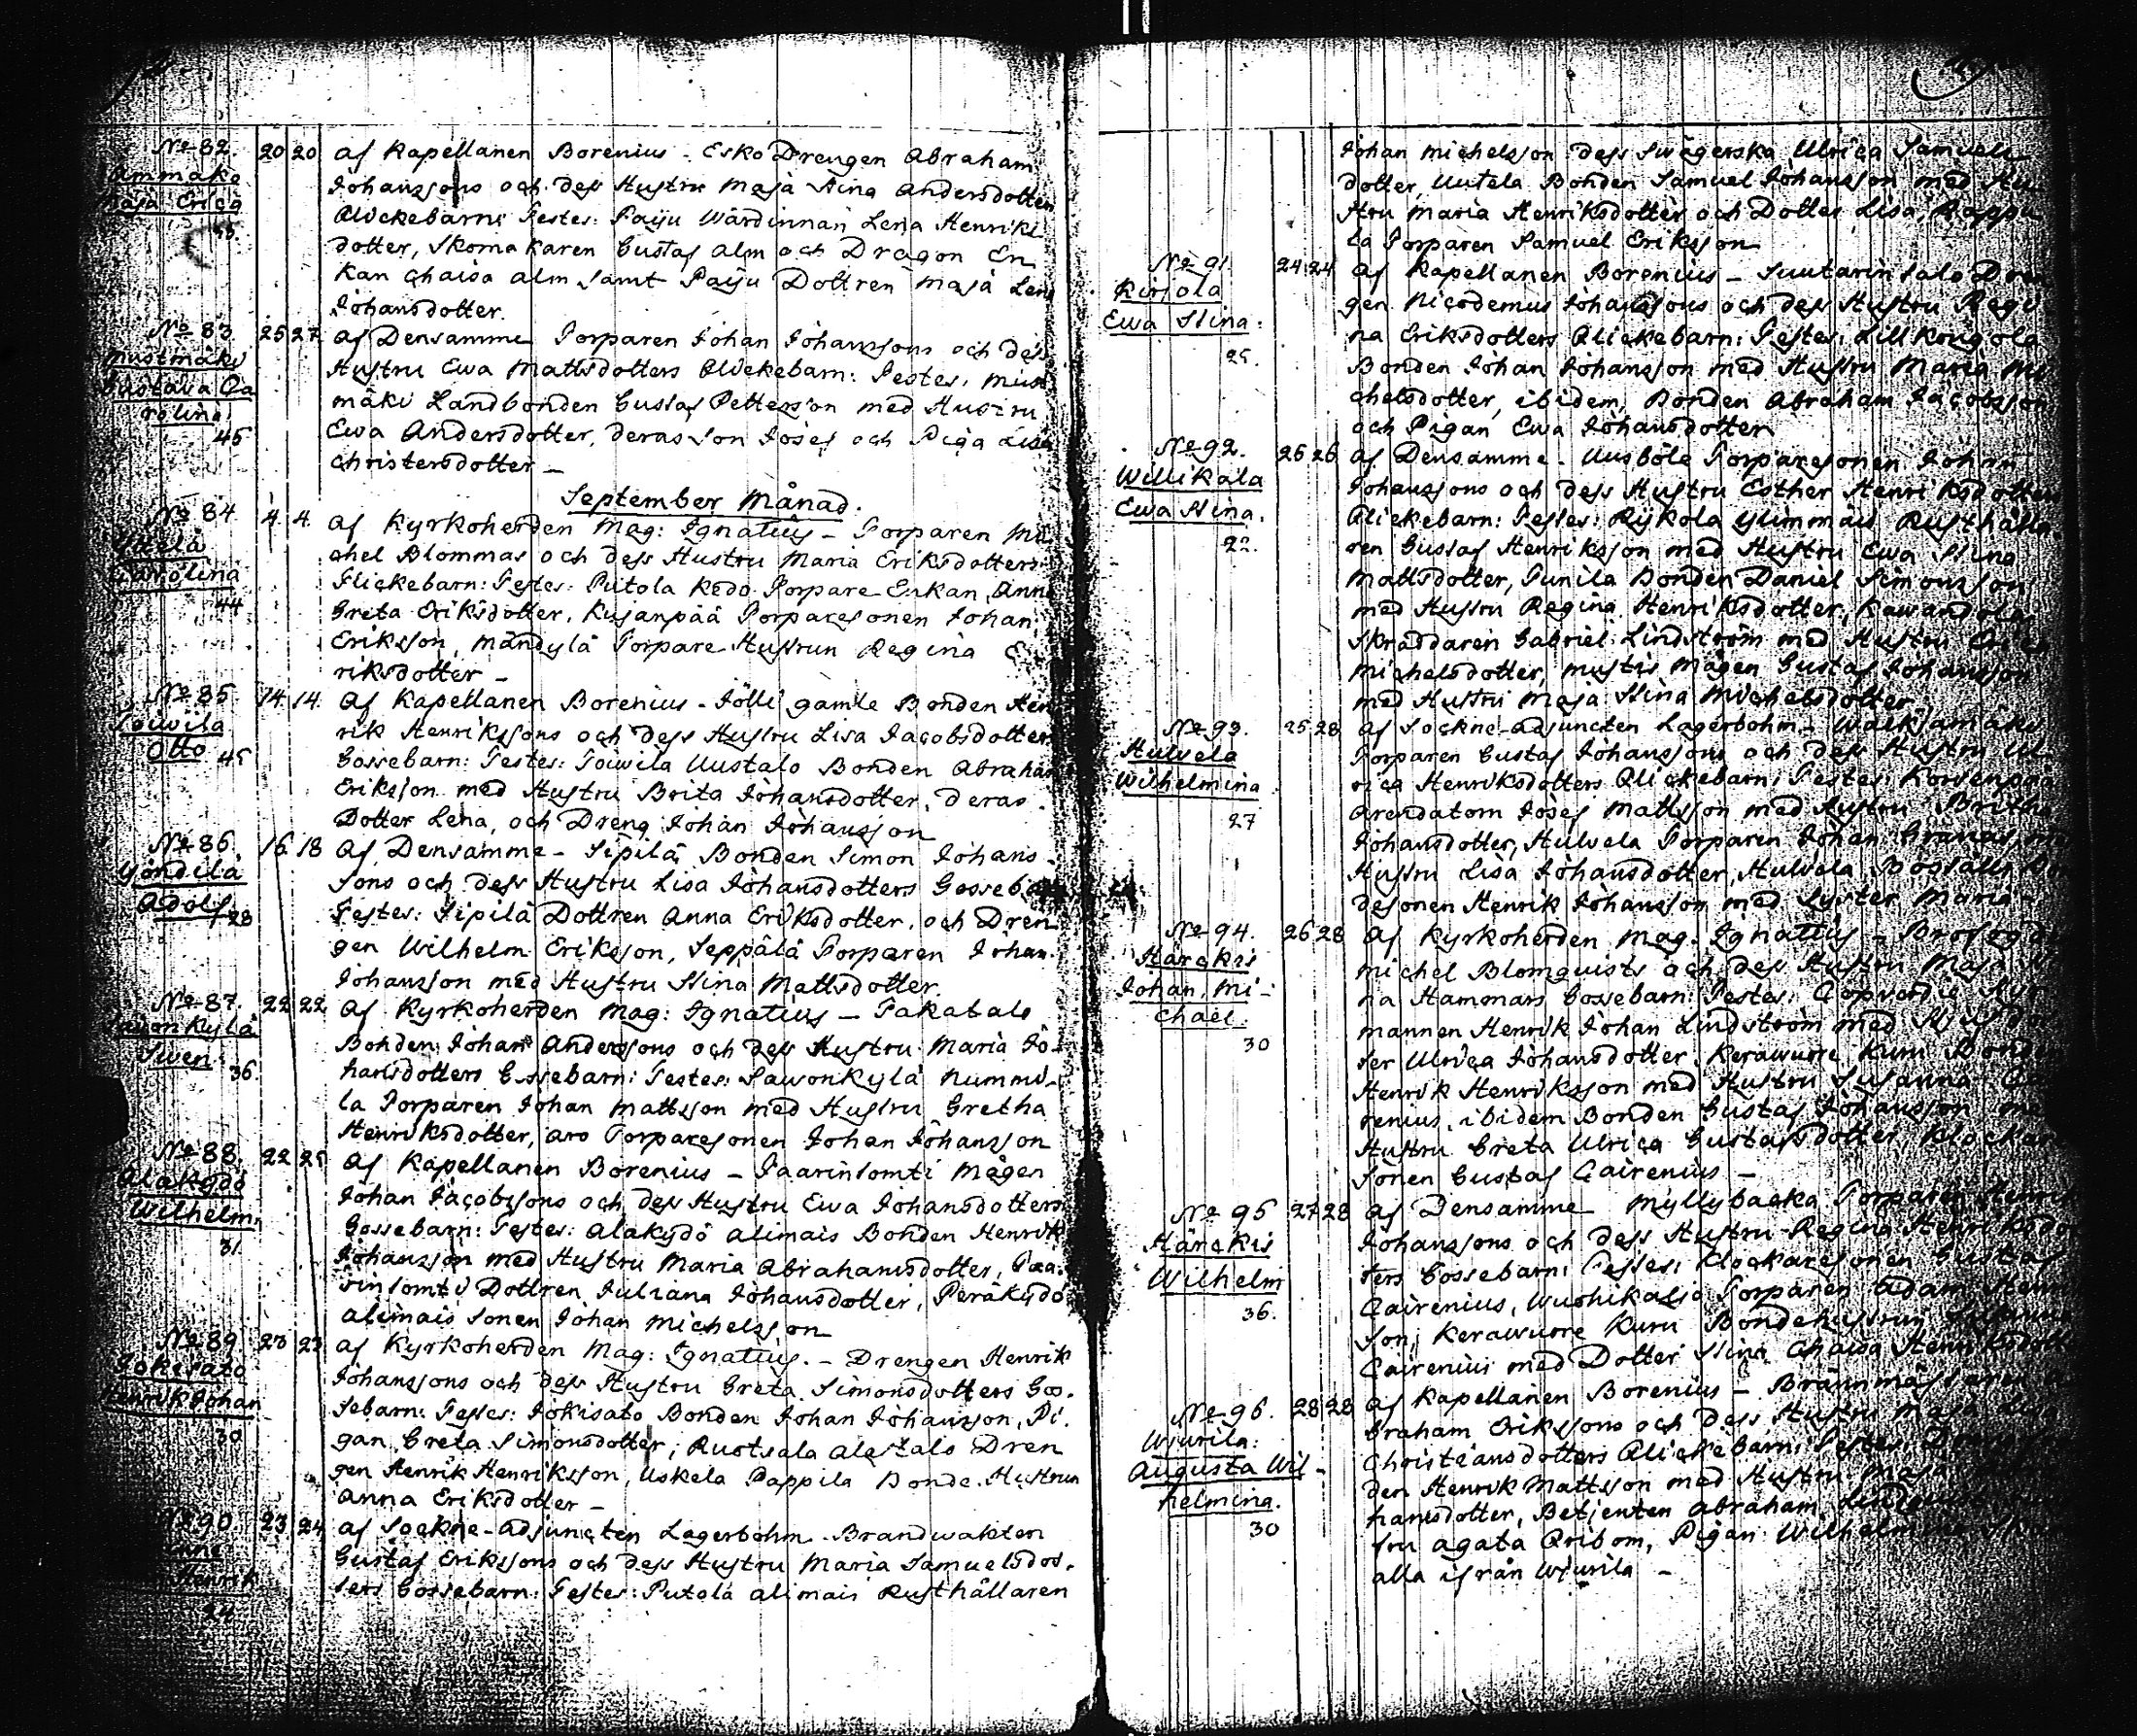 No 82. 20 20 af Kapellanen Borenius - Esko Drengen Abraham
Ammako Johanssons och dess Hustru Maja Stina Andersdotters
Maja Erica Flickebarn: Testes: Paiju Wärdinnan Lena Henriks
dotter, Skomakaren Gustaf Alm och Dragon En
kan Chaisa Alm samt Paiju Dottren Maja Lena
Johansdotter.
No 83 25 27 af Densamme Torparen Johan Johanssons och dess
Mustmäki Hustru Ewa Mattsdotters Flickebarn: Testes: Must
Gustava Ca mäki Landbonden Gustaf Pettersson med Hustru
rolina 45 Ewa Andersdotter, deras Son Josef och Piga Lisa
Christersdotter -
September Månad.
No 84 4. 4. af Kyrkoherden Mag: Ignatius - Torparen Mi
Yttelä chel Blommas och dess Hustru Maria Eriksdotters
Carolina Flickebarn: Testes: Putola Kedo Torpare Enkan Anna
44 Greta Eriksdotter, Kujanpää Torparesonen Johan
Eriksson, Mändylä Torpare Hustrun Regina E
riksdotter -
No 85 14 14 af Kapellanen Borenius - Jölli gamle Bonden Hen
Toiwila rik Henrikssons och dess Hustru Lisa Jacobsdotters
Otto 45 Gossebarn: Testes: Toiwila Uustalo Bonden Abraham
Eriksson med Hustru Brita Johansdotter, deras
Dotter Lena, och Dreng Johan Johansson
No 86. 16 18 af Densamme - Sipilä Bonden Simon Johans-
Yöndilä sons och dess Hustru Lisa Johansdotters Gosseb
Adolf 28 Testes: Sipilä Dottren Anna Eriksdotter, och Dren
gen Wilhelm Eriksson, Seppälä Torparen Johan
Johansson med Hustru Stina Mattsdotter.
No 87. 22 22 af Kyrkoherden Mag: Ignatius - Takatalo
Sawonkylä Bonden Johan Anderssons och dess Hustru Maria Jo-
Swen 36. hansdotters Gossebarn: Testes: Sawonkylä Nummi-
la Torparen Johan Mattsson med Hustru Gretha
Henriksdotter, aro Torparesonen Johan Johansson
No 88. 22 25 af Kapellanen Borenius - Paarinlomti Mågen
Alakydö Johan Jacobssons och dess Hustru Ewa Johansdotters
Wilhelm. Gossebarn: Testes: Alakydö Alimais Bonden Henrik
31. Johansson med Hustru Maria Abrahamsdotter, Paa-
rinlomti Dottren Juliana Johansdotter, Peräkydö
Alimais Sonen Johan Michelsson
No 89 23 23 af Kyrkoherden Mag: Ignatius. - Drengen Henrik
Jokisato Johanssons och dess Hustru Greta Simonsdotters Gos-
Henrik Johan sebarn: Testes: Jokisato Bonden Johan Johansson, Pi-
30 gan Greta Simonsdotter, Ruotsala Alastalo Dren
gen Henrik Henriksson, Uskela Pappila Bonde Hustrun
Anna Eriksdotter -
No 90. 23 24 af Sockne-Adjuncten Lagerbohm. Brandwakten
Gustaf Erikssons och dess Hustru Maria Samuelsdot-
Henrik ters Gossebarn: Testes: Putola Alimais Rusthållaren
24
Johan Michelsson dess Swägerska Ulrica Samuels
dotter, Uutela Bonden Samuel Johansson med Hu
stru Maria Henriksdotter och Dotter Lisa, Pappi
la Torparen Samuel Eriksson
No 91. 24 24 af Kapellanen Borenius - Suutarin talo Dren
Kirjola gen Nicodemus Johanssons och dess Hustru Regi
Ewa Stina: na Eriksdotters Flickebarn: Testes: Lill Koirgola
25. Bonden Johan Johansson med Hustru Maria Mi
chelsdotter, ibidem, Bonden Abraham Jacobsson
och Pigan Ewa Johansdotter
No 92. 26 26 af Densamme. Uusböle Torparesonen Johan
Willikala Johanssons och dess Hustru Esther Henriksdotters
Ewa Stina. Flickebarn: Testes: Rijkola Ylimmäis Rusthålla-
22. ren Gustaf Henriksson med Hustru Ewa Stina
Mattsdotter, Junila Bonden Daniel Simonsson
med Hustru Regina Henriksdotter, Kawandola
Skräddaren Gabriel Lindström med Hustru
Michelsdotter, Mustis Mågen Gustaf Johansson
med Hustru Maja Stina Michelsdotter
No 93. 25 28 af Sockne-Adjuncten Lagerbohm - Walkjamäki
Hulwela Torparen Gustaf Johanssons och dess Hustru Ul
Wilhelmina rica Henriksdotters Flickebarn: Testes: Korvenpää
27 Arendatorn Josef Mattsson med Hustru Britha
Johansdotter, Hulwela Torparen Johan Granas
Hustru Lisa Johansdotter, Hulwela Bogsälls
desonen Henrik Johansson med Syster Maria
No 94. 26 28 af Kyrkoherden Mag. Ignatius -
Härckis Michel Blomquists och dess Hustru Maja
Johan Mi- na Hammars Gossebarn: Testes: Coopverdie Styr
chaël. mannen Henrik Johan Lindström med
30 ter Ulrica Johansdotter, Kerawuore Kuru Bonden
Henrik Henriksson med Hustru Susanna
renius, ibidem Bonden Gustaf Johansson
Hustru Greta Ulrica Gustafsdotter, Klockare
Sonen Gustaf Cairenius -
No 95 27 28 af Densamme Myllybacka Torparen Henrik
Härckis Johanssons och dess Hustru Regina Henriksdot
Wilhelm ters Gossebarn: Testes: Klockaresonen Gustaf
36. Cairenius, Wuohikallio Torparen Adam Henriks
son, Kerawuore Kuru Bondehustrun Susanna
Cairenius med Dotter Stina Chaisa Henriksdotter
No 96. 28 28 af Kapellanen Borenius - Brännmästaren A
Wiurila: braham Erikssons och dess Hustru Maja
Augusta Wil- Christiansdotters Flickebarn: Testes:
helmina. den Henrik Mattsson med Hustru Maja
30 hansdotter, Betjenten Abraham
tru Agata Qribom, Pigan Wilhelmina
alla ifrån Wiurila -